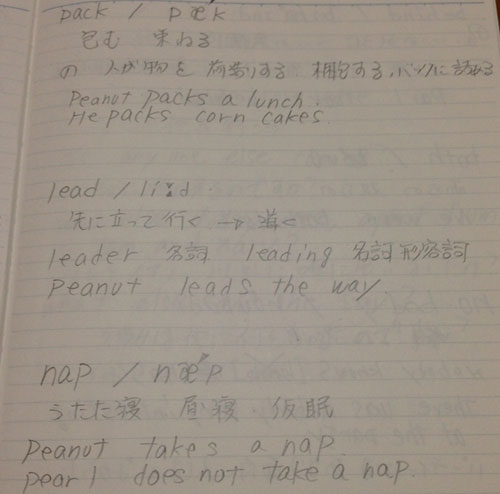 pack / pǽk
包む 束ねる
の 人が物を 荷造りする 梱包する、パックに詰める
Peanut packs a lunch.
He packs corn cakes.
lead / li:d
先に立って行く → 導く
leader 名詞 leading 名詞 形容詞
Peanut leads the way.
nap / nǽp
うたた寝 昼寝 仮眠
Peanut takes a nap.
pearl does not take a nap.